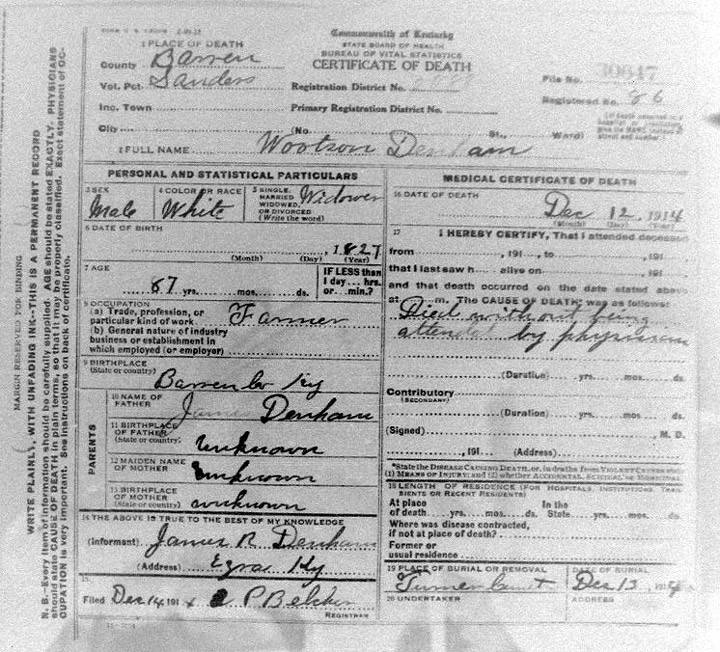 1 PLACE OF DEATH
County Barren
Vot. Pct. Sanders
Inc. Town
City
No.
St.,
Ward)
2 FULL NAME Wootson Denham
Commonwealth of Kentucky
STATE BOARD OF HEALTH
BUREAU OF VITAL STATISTICS
CERTIFICATE OF DEATH
Registration District No.
Primary Registration District No.
File No. 30647
Registered No. 86
PERSONAL AND STATISTICAL PARTICULARS
3 SEX
Male
4 COLOR OR RACE
White
5 SINGLE,
MARRIED
WIDOWED,
OR DIVORCED
(Write the word)
Widower
6 DATE OF BIRTH
, 1827
(Month) (Day) (Year)
7 AGE
87 yrs. mos. ds.
IF LESS than
1 day... hrs.
or... min.?
8 OCCUPATION
(a) Trade, profession, or
particular kind of work Farmer
(b) General nature of industry
business or establishment in
which employed (or employer)
9 BIRTHPLACE
(State or country)
Barren Co Ky
PARENTS
10 NAME OF
FATHER
James Denham
11 BIRTHPLACE
OF FATHER
(State or country)
unknown
12 MAIDEN NAME
OF MOTHER
unknown
13 BIRTHPLACE
OF MOTHER
(State or country)
unknown
14 THE ABOVE IS TRUE TO THE BEST OF MY KNOWLEDGE
(Informant) James R Denham
(Address) Ezra Ky
15
Filed Dec 14 191 4 P Belcher
REGISTRAR
MEDICAL CERTIFICATE OF DEATH
16 DATE OF DEATH
Dec 12, 1914
(Month) (Day) (Year)
17 I HEREBY CERTIFY, That I attended deceased
from , 191 , to , 191
that I last saw h alive on , 191
and that death occurred on the date stated above
at m. The CAUSE OF DEATH* was as follows:
Died without being
attended by physician
(Duration) yrs. mos. ds.
Contributory
(SECONDARY)
(Duration) yrs. mos. ds.
(Signed) , M. D.
, 191 (Address)
*State the DISEASE CAUSING DEATH, or, in deaths from VIOLENT CAUSES state
(1) MEANS OF INJURY; and (2) whether ACCIDENTAL, SUICIDAL or HOMICIDAL
18 LENGTH OF RESIDENCE (FOR HOSPITALS, INSTITUTIONS, TRANSIENTS OR RECENT RESIDENTS)
At place
of death yrs. mos. ds.
In the
State yrs. mos. ds.
Where was disease contracted,
if not at place of death?
Former or
usual residence
19 PLACE OF BURIAL OR REMOVAL
DATE OF BURIAL
Dec 13, 1914
20 UNDERTAKER
ADDRESS
MARGIN RESERVED FOR BINDING
WRITE PLAINLY, WITH UNFADING INK--THIS IS A PERMANENT RECORD
N. B.--Every item of information should be carefully supplied. AGE should be stated EXACTLY. PHYSICIANS
should state CAUSE OF DEATH in plain terms, so that it may be properly classified. Exact statement of OC-
CUPATION is very important. See instructions on back of certificate.